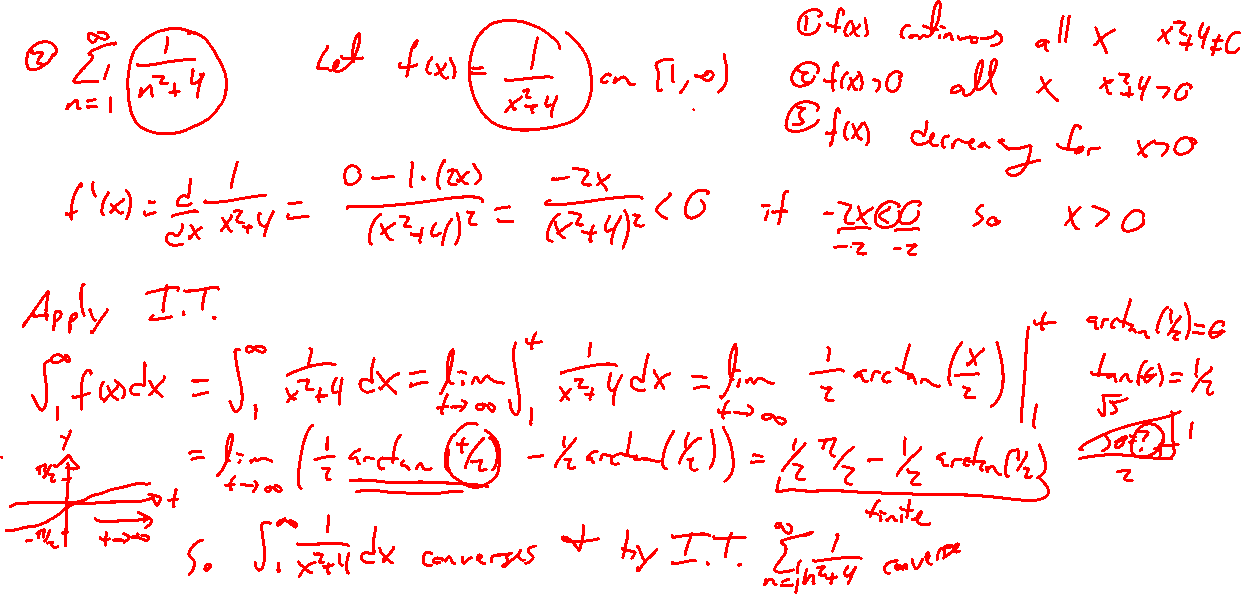 ② ∑_{n=1}^{∞} 1/(n²+4) Let f(x) = 1/(x²+4) on [1,∞)
① f(x) continuous all x x²+4≠0
② f(x)>0 all x x²+4>0
③ f(x) decreasing for x>0
f'(x) = d/dx 1/(x²+4) = (0-1·(2x))/(x²+4)² = -2x/(x²+4)² < 0 if -2x/-2 < 0/-2 so x > 0
Apply I.T.
∫₁^∞ f(x)dx = ∫₁^∞ 1/(x²+4) dx = lim_{t→∞} ∫₁^t 1/(x²+4) dx = lim_{t→∞} 1/2 arctan(x/2) |₁^t
arctan(1/2)=θ
tan(θ)=1/2
√5
1
2
= lim_{t→∞} (1/2 arctan(t/2) - 1/2 arctan(1/2)) = 1/2 π/2 - 1/2 arctan(1/2)
finite
y
π/2
t
-π/2
t→∞
So ∫₁^∞ 1/(x²+4) dx converges + by I.T. ∑_{n=1}^{∞} 1/(n²+4) converge